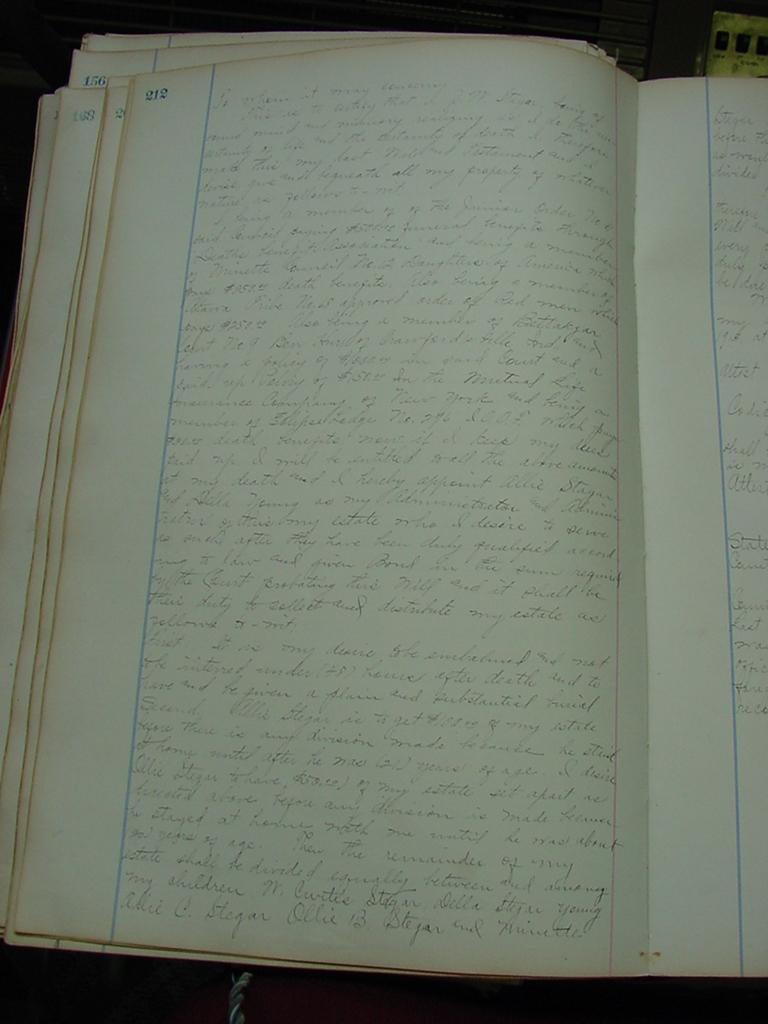 156
168
2
212
To whom it may concern
This is to certify that I J. W. Stegar, being of
sound mind and memory realizing as I do the un
certainty of life and the certainty of death I therefore
make this my last Will and Testament and I
devise give and bequeath all my property of whatever
nature as follows to-wit.
Being a member of the Junior Order No.
said Council owning $500.00 funeral benefits through
Deaths benefits Association and being a member
of Winnette Council No. 12 Daughters of America which
pays $250.00 death benefits. Also being a member of
Ottawa Tribe No. 65 approved order of Red men which
pays $250.00 Also being a member of
Court No. 9 Ben Hur of Crawfordsville, Ind and
having a policy of $1,000.00 in said Court and a
paid up Policy of $150.00 in the Mutual Life
Insurance Company of New York and being a
member of Eclipse Lodge No. 296 I.O.O.F. which pays
death benefits now if I keep my dues
paid up I will be entitled to all the above amounts
at my death and I hereby appoint Allie Stegar
and Della Young as my Administrator and Adminis
tratrix of this my estate who I desire to serve
as such after they have been duly qualified accord
ing to law and given Bond in the sum required
by the Court probating this Will and it shall be
their duty to collect and distribute my estate as
follows to-wit.
First. It is my desire to be embalmed and not
to be interred under (48) hours after death and to
have and be given a plain and substantial burial
Second, Allie Stegar is to get $100.00 of my estate
before there is any division made because he staid
at home until after he was (21) years of age. I desire
Ollie Stegar to have $50.00) of my estate set apart as
directed above before any division is made because
he stayed at home with me until he was about
years of age. Then the remainder of my
estate shall be divided equally between and among
my children W. Curtis Stegar, Della Stegar Young
Allie C. Stegar Ollie B. Stegar and Winnette
Stegar
before the
as
divided
every
be done
my
Attest
Codi
shall
is
Attest
State
Coun
Last
was
offic